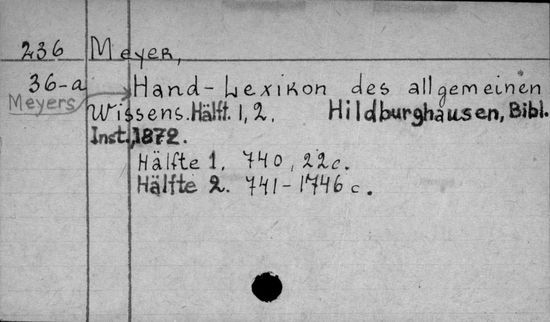 236 Meyer,
36-a Hand-Lexikon des allgemeinen
Meyers
Wissens. Hälft. 1, 2. Hildburghausen, Bibl.
Inst., 1872.
Hälfte 1. 740, 22c.
Hälfte 2. 741-1746 c.